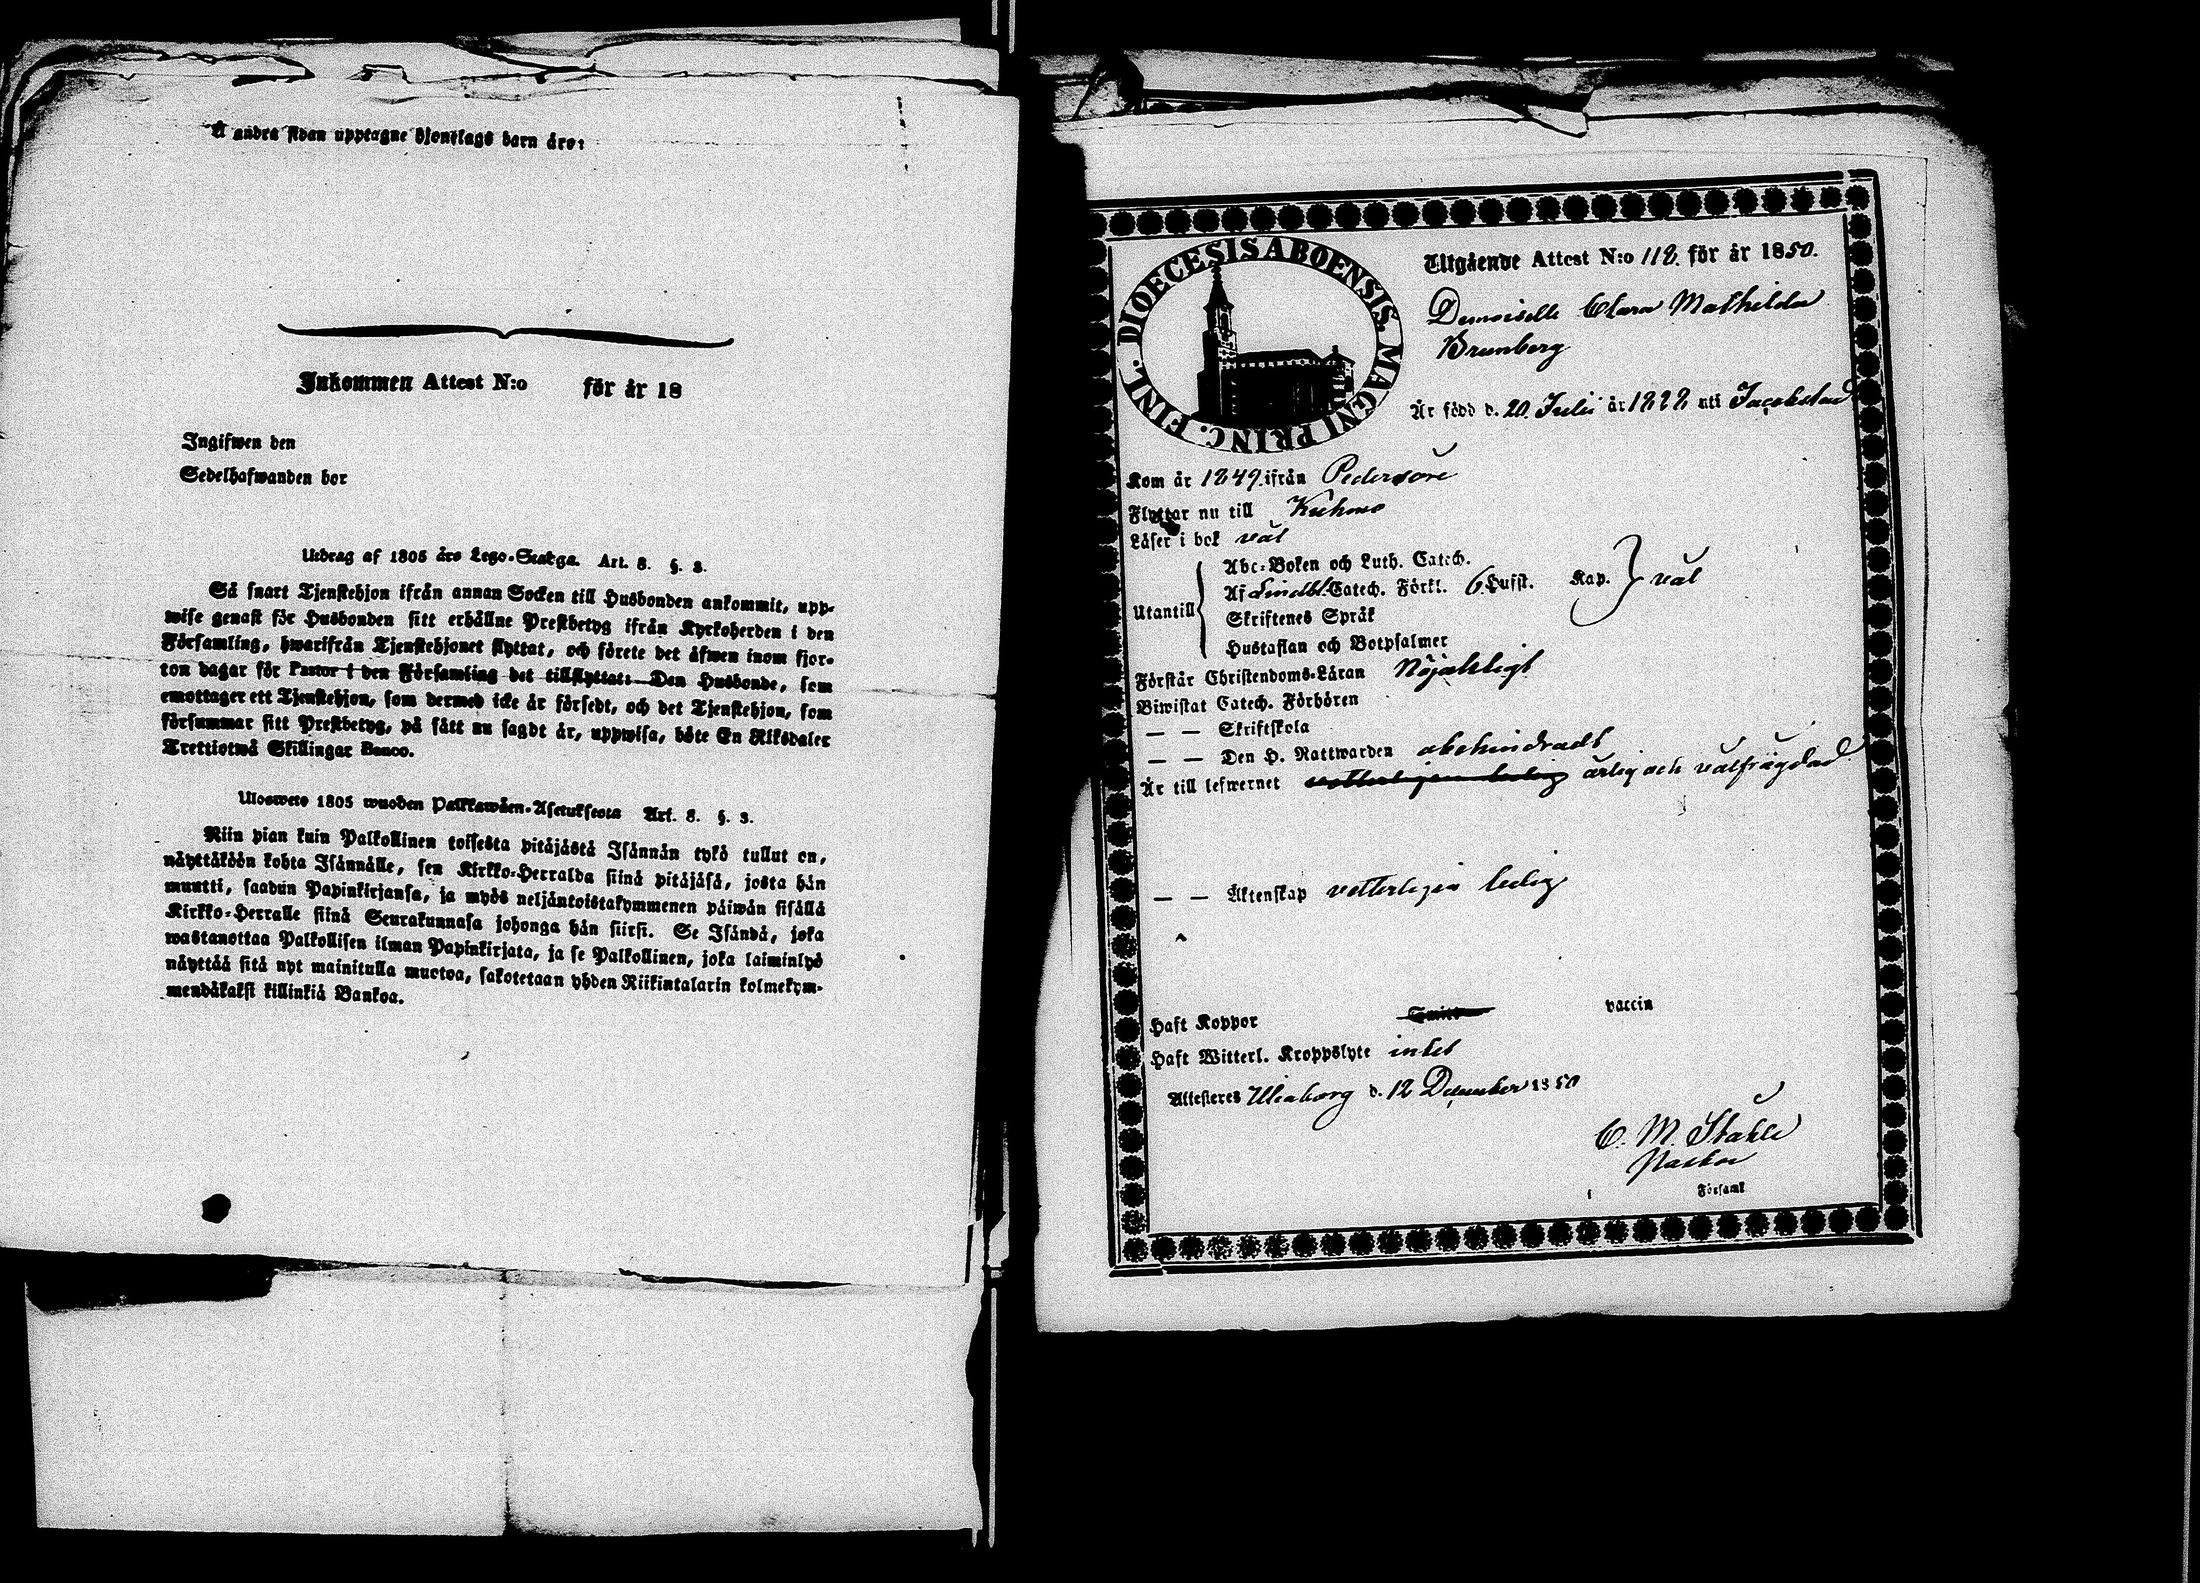 Å andra sidan upptagne hjonslags barn äro:
Inkommen Attest N:o för år 18
Ingifwen den
Sedelhafwanden bor
Utdrag af 1805 års Lego-Stadga. Art. 8. §. 3.
Så snart Tjenstehjon ifrån annan Socken till Husbonden ankommit, upp-
wise genast för Husbonden sitt erhållne Prestbetyg ifrån Kyrkoherden i den
Församling, hwarifrån Tjenstehjonet flyttat, och förete det äfwen inom fjor-
ton dagar för Pastor i den Församling det tillflyttat: Den Husbonde, som
emottager ett Tjenstehjon, som dermed icke är försedt, och det Tjenstehjon, som
försummar sitt Prestbetyg, på sätt nu sagdt är, uppwisa, böte En Riksdaler
Trettiotwå Skillingar Banco.
Ulosweto 1805 wuoden Palkkawäen-Asetuksesta Art. 8. §. 3.
Niin pian kuin Palkollinen toisesta pitäjästä Isännän tykö tullut on,
näyttäköön kohta Isännälle, sen Kirkko-Herralda siinä pitäjäsä, josta hän
muutti, saadun Papinkirjansa, ja myös neljäntoistakymmenen päiwän sisällä
Kirkko-Herralle siinä Seurakunnasa johonga hän siirsi. Se Isändä, joka
wastanottaa Palkollisen ilman Papinkirjata, ja se Palkollinen, joka laiminlyö
näyttää sitä nyt mainitulla muotoa, sakotetaan yhden Riikintalarin kolmekym-
mendäkaksi killinkiä Bankoa.
DIOECESIS ABOENSIS. MAGNI PRINC. FINL.
Utgående Attest N:o 118. för år 1850.
Demoiselle Clara Mathilda
Brunberg
Är född d. 20. Julii år 1828 uti Jacobstad
Kom år 1849. ifrån Pedersöre
Flyttar nu till Kuhmo
Läser i bok väl
Abc-Boken och Luth. Catech.
Utantill Af Lindbl. Catech. Förkl. 6 Hufst. Kap. } väl
Skriftenes Språk
Hustaflan och Botpsalmer
Förstår Christendoms-Läran Nöjaktligt
Biwistat Catech. Förhören
— — Skriftskola
— — Den H. Nattwarden obehindradt
Är till lefwernet vetterligen ledig ärlig och välfrägdad
— — Äktenskap vetterligen ledig
Haft Koppor Smitt vaccin
Haft Witterl. Kroppslyte intet
Attesteres Uleaborg d. 12 December 1850
C. M. Stahle
Pastor
Församl